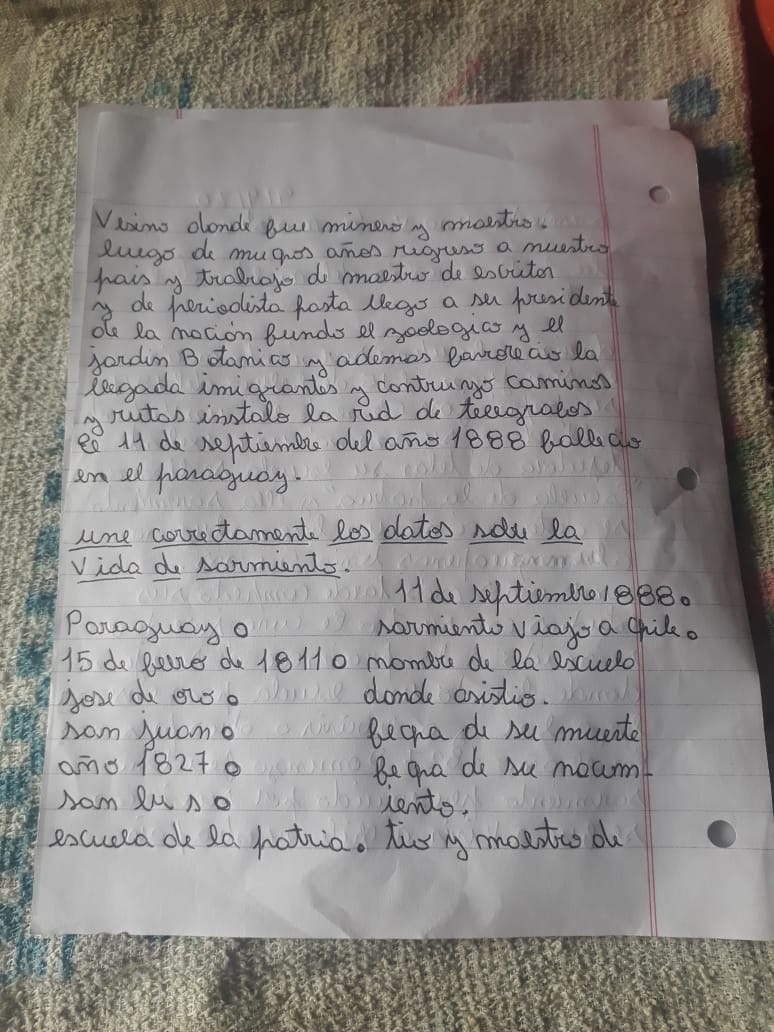 Vesino donde fue minero y maestro.
luego de muchos años regreso a nuestro
pais y trabajo de maestro de escritor
y de periodista hasta llego a ser president
de la nación fundo el zoologico y el
jardin Botamico y ademas favorecio la
llegada imigrantes y contruyo caminos
y rutas instalo la red de telegrafos
El 11 de septiembre del año 1888 fallecio
en el paraguay.
une correctamente los datos sobre la
vida de sarmiento.
11 de septiembre 1888.
Paraguay o sarmiento viajo a chile.
15 de febrero de 1811 o nombre de la escuela
jose de oro o donde asistio.
san juan o fecha de su muerte
año 1827 o fecha de su nacim-
san luis o iento.
escuela de la patria. tio y maestro de